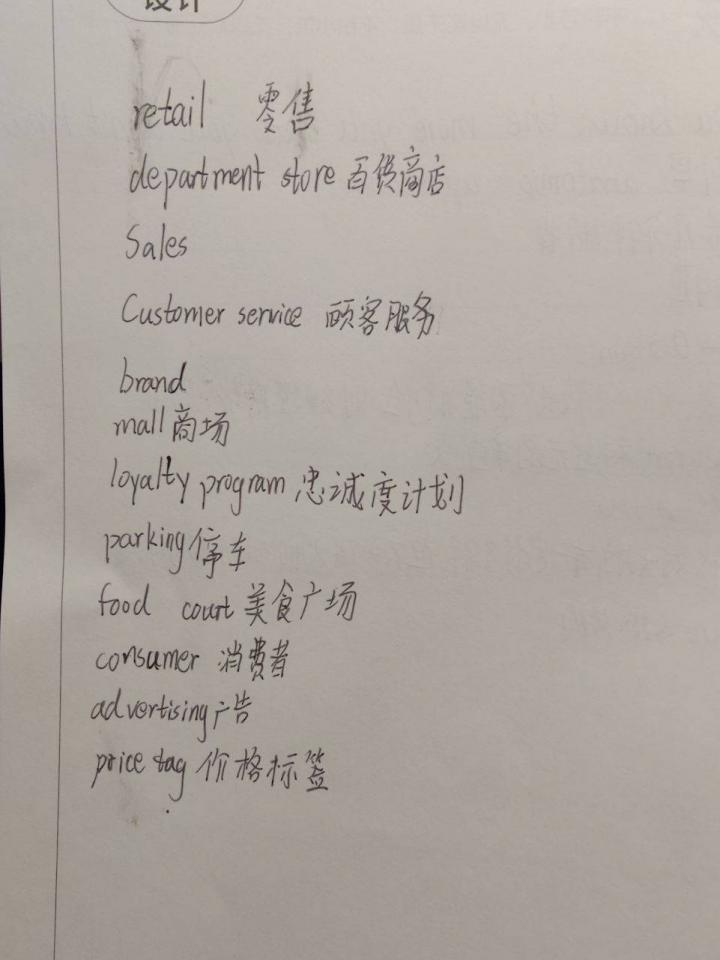 设计
retail 零售
department store 百货商店
Sales
Customer service 顾客服务
brand
mall 商场
loyalty program 忠诚度计划
parking 停车
food court 美食广场
consumer 消费者
advertising 广告
price tag 价格标签